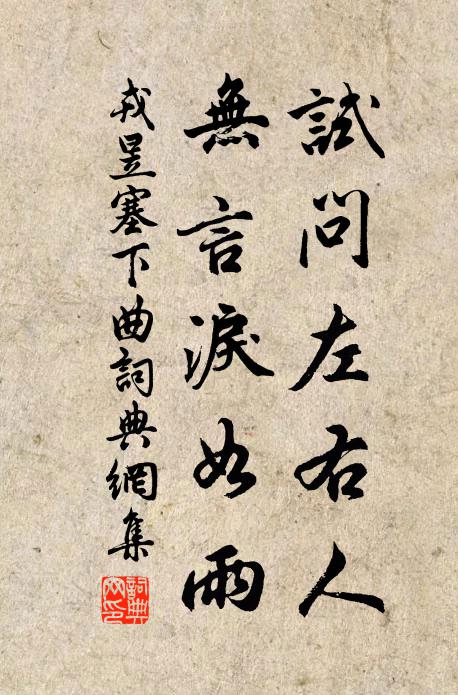 試問左右人
無言淚如雨
戎昱塞下曲詞典網集
詞典網印